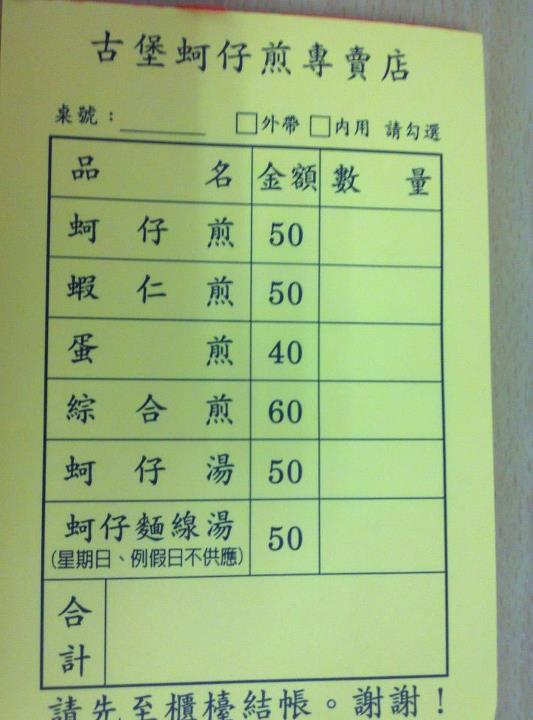 古堡蚵仔煎專賣店
桌號：______ □外帶 □內用 請勾選
品名 金額 數量
蚵仔煎 50
蝦仁煎 50
蛋煎 40
綜合煎 60
蚵仔湯 50
蚵仔麵線湯 50
(星期日、例假日不供應)
合計
請先至櫃檯結帳。謝謝！